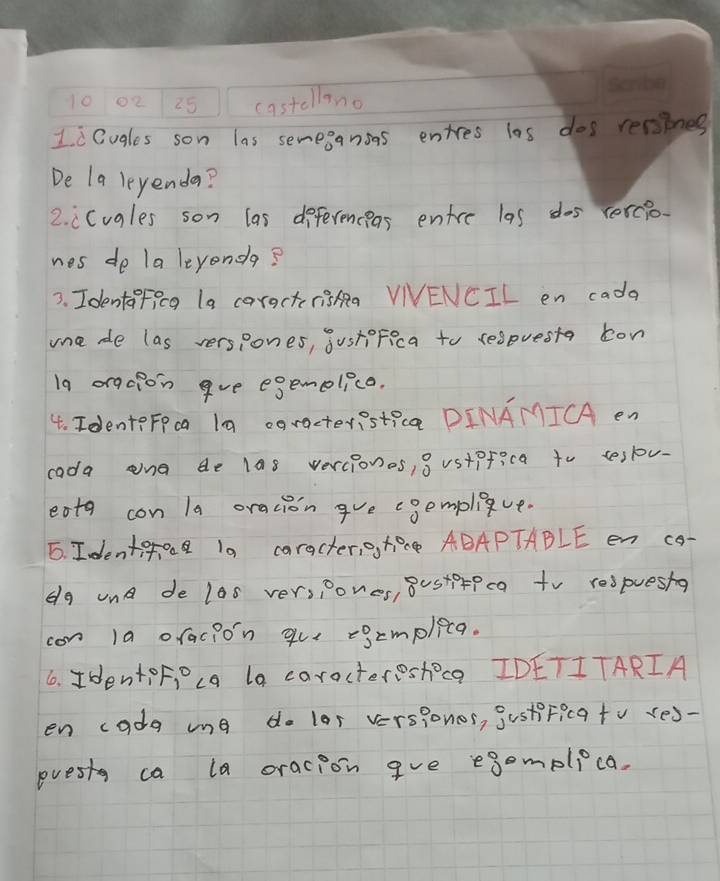 Scribe
10 02 25 castellano
1.¿Cuales son las semejansas entres las dos versiones
De la leyenda?
2.¿Cuales son las diferencias entre las dos vercio-
nes de la leyenda?
3. Identifica la caracteristica VIVENCIL en cada
una de las versiones, justifica tu respuesta con
la oración que ejemplica.
4. Identifica la caracteristica DINÁMICA en
cada una de las verciones, justifica tu respu-
esta con la oración que ejemplique.
5. Identifica la caracteristica ADAPTABLE en ca-
da una de las versiones, justifica tu respuesta
con la oración que ejemplica.
6. Identifica la caracteristica IDETITARIA
en cada una de las versiones, justifica tu res-
puesta ca la oración que ejemplica.